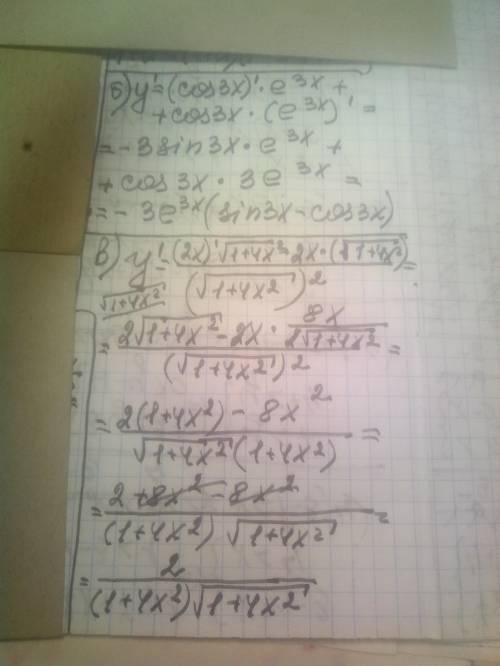 б) y' = (cos3x)' · e^3x +
+ cos3x · (e^3x)' =
= - 3sin3x · e^3x +
+ cos3x · 3e^3x =
= - 3e^3x (sin3x - cos3x)
в) y' = ((2x)' √(1+4x²) - 2x · (√(1+4x²))') / (√(1+4x²))² =
√(1+4x²)
= (2√(1+4x²) - 2x · 8x / (2√(1+4x²))) / (√(1+4x²))² =
= (2(1+4x²) - 8x²) / (√(1+4x²) (1+4x²)) =
= (2 + 8x² - 8x²) / ((1+4x²) √(1+4x²)) =
= 2 / ((1+4x²) √(1+4x²))